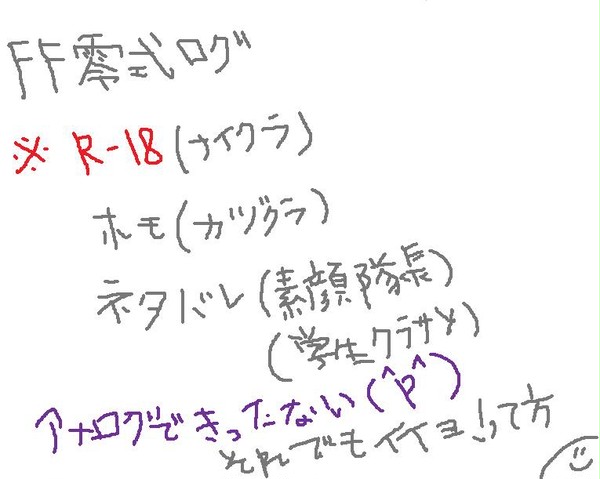 FF零式ログ
※ R-18 (ナイクラ)
ホモ (カヅクラ)
ネタバレ (素顔隊長)
(学生クラサメ)
アナログできったない (^p^)
それでもイイヨ!って方